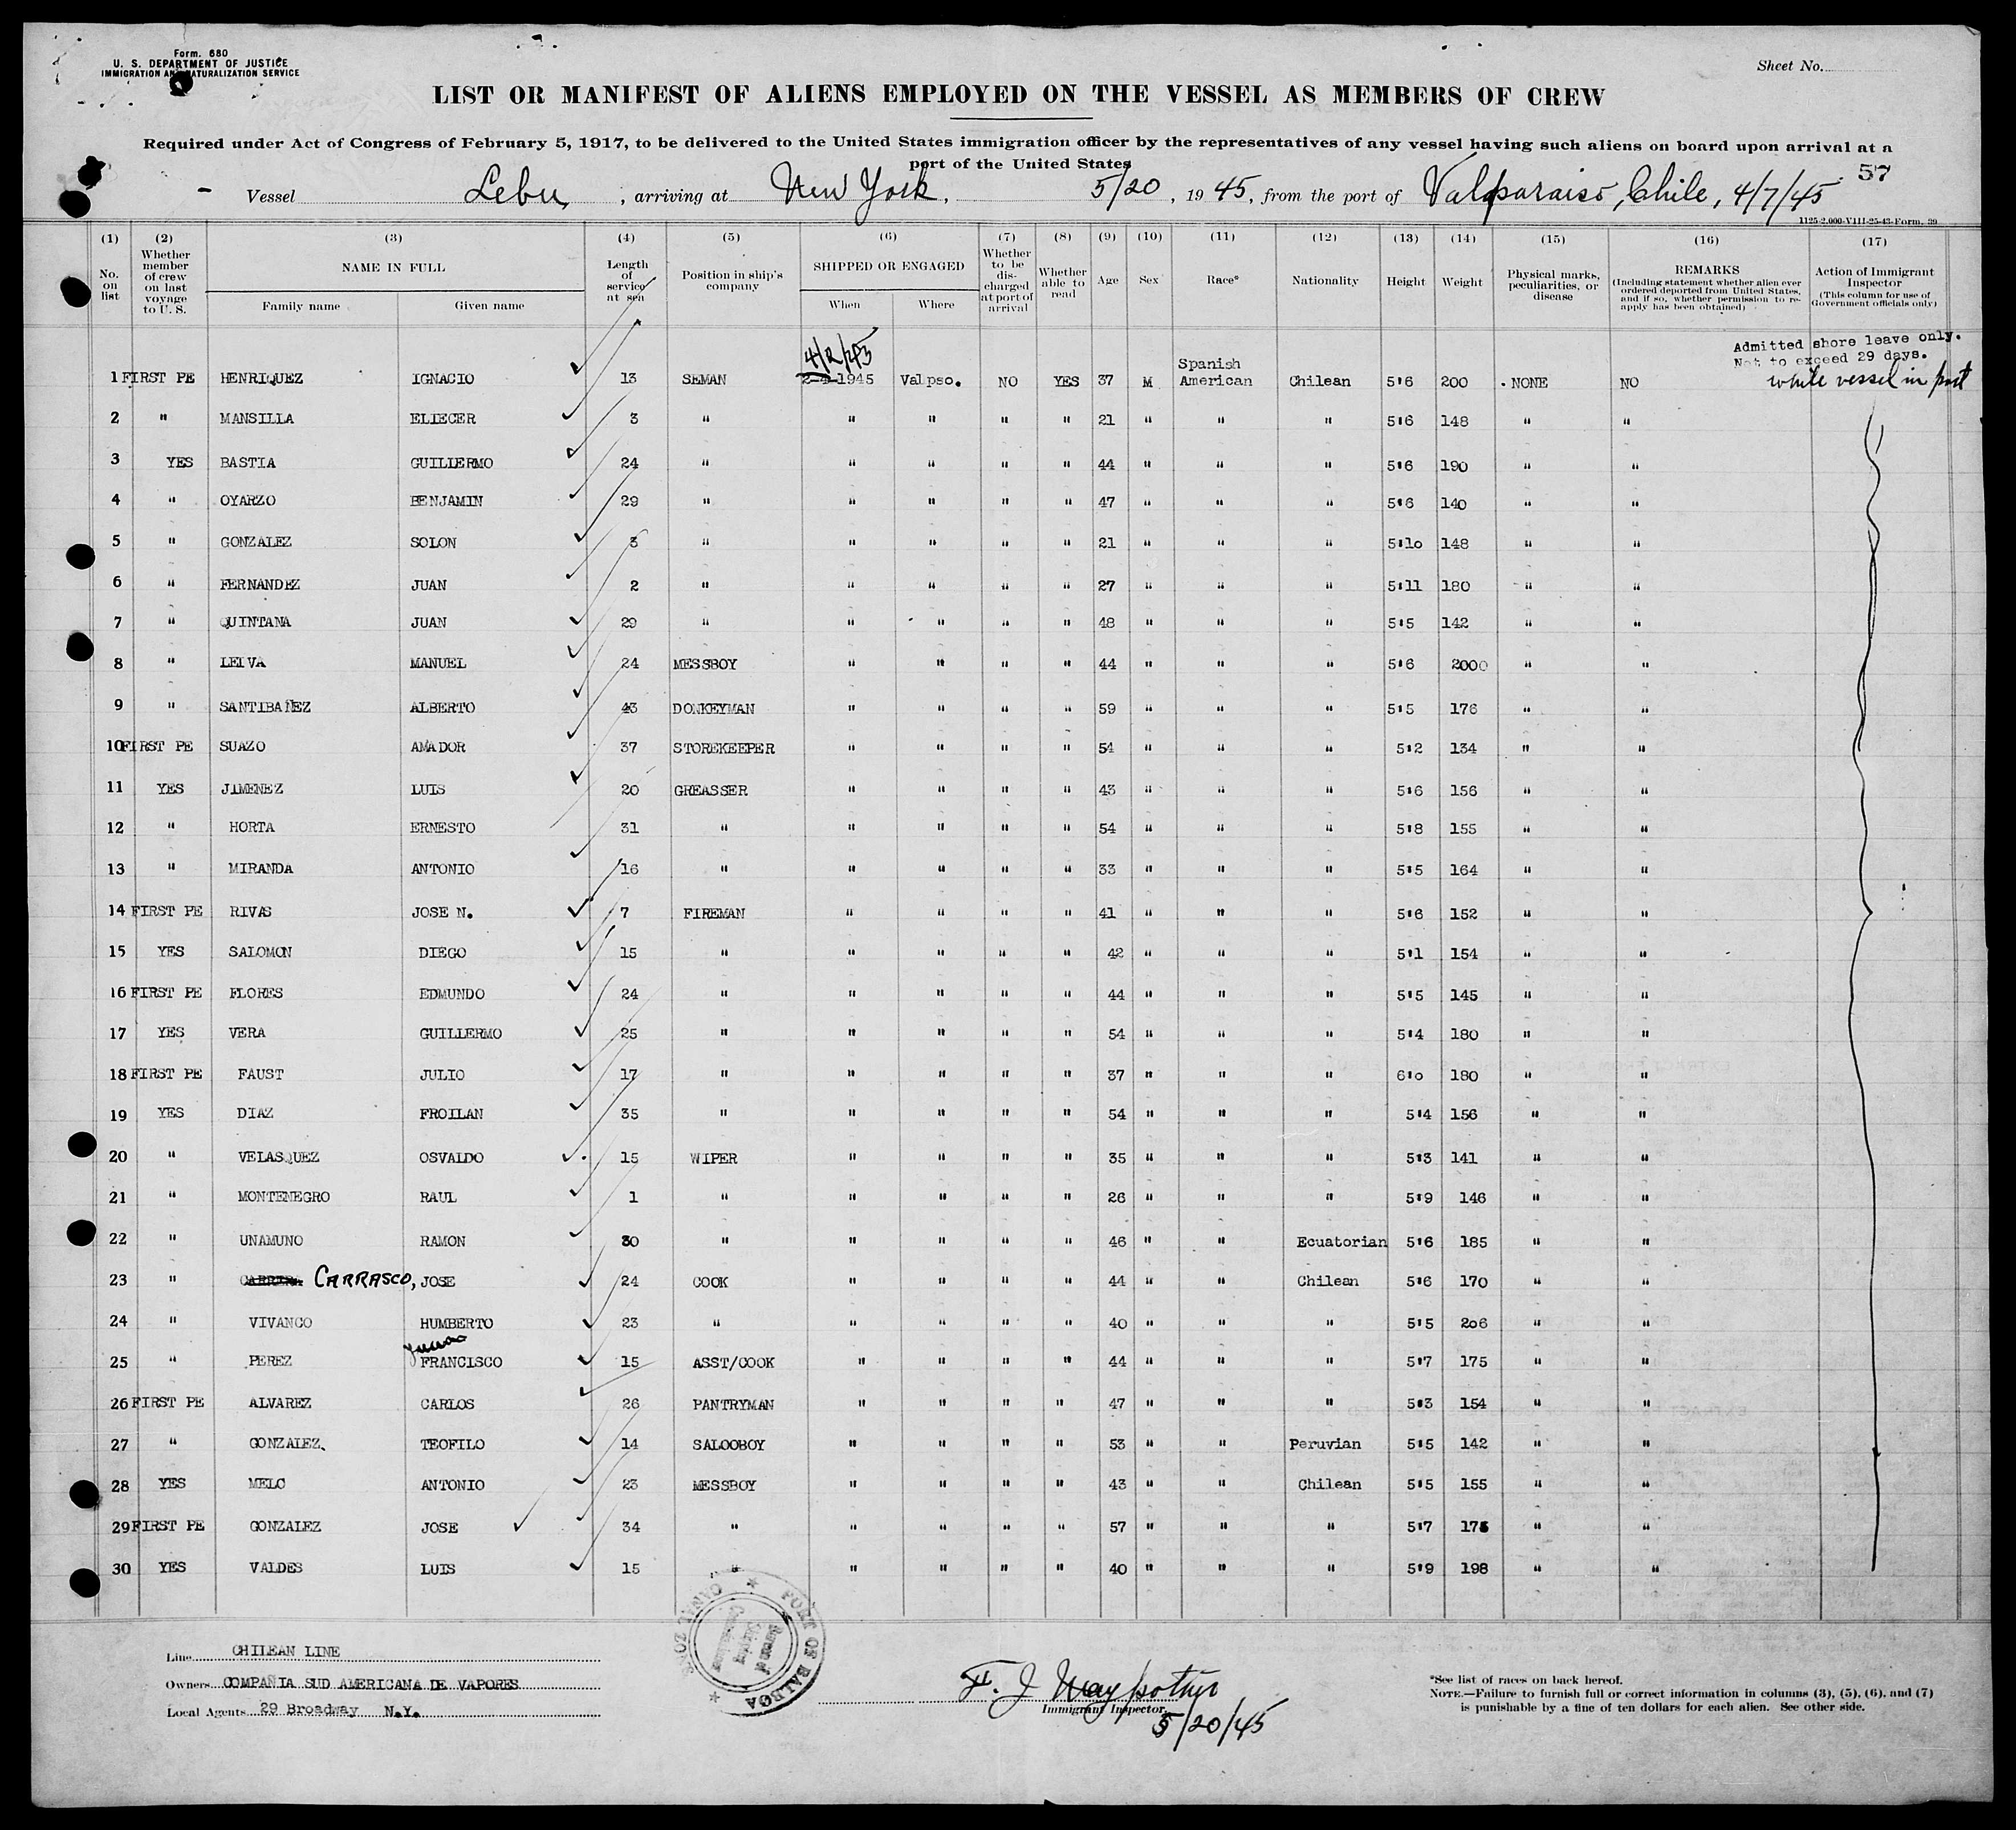 Form. 680
U. S. DEPARTMENT OF JUSTICE
IMMIGRATION AND NATURALIZATION SERVICE
Sheet No.
LIST OR MANIFEST OF ALIENS EMPLOYED ON THE VESSEL AS MEMBERS OF CREW
Required under Act of Congress of February 5, 1917, to be delivered to the United States immigration officer by the representatives of any vessel having such aliens on board upon arrival at a
port of the United States
57
Vessel Lebu, arriving at New York, 5/20, 1945, from the port of Valparaiso, Chile, 4/7/45
1125-2.000-VIII-25-43-Form. 39
(1) (2) (3) (4) (5) (6) (7) (8) (9) (10) (11) (12) (13) (14) (15) (16) (17)
No. on list
Whether member of crew on last voyage to U. S.
NAME IN FULL
Family name Given name
Length of service at sea
Position in ship's company
SHIPPED OR ENGAGED
When Where
Whether to be discharged at port of arrival
Whether able to read
Age Sex Race* Nationality Height Weight
Physical marks, peculiarities, or disease
REMARKS
(Including statement whether alien ever ordered deported from United States, and if so, whether permission to reapply has been obtained)
Action of Immigrant Inspector
(This column for use of Government officials only)
Admitted shore leave only.
Not to exceed 29 days.
while vessel in port
4/2/45
1 FIRST PE HENRIQUEZ IGNACIO 13 SEMAN 2-4-1945 Valpso. NO YES 37 M Spanish American Chilean 5'6 200 NONE NO
2 " MANSILLA ELIECER 3 " " " " " 21 " " " 5'6 148 " "
3 YES BASTIA GUILLERMO 24 " " " " " 44 " " " 5'6 190 " "
4 " OYARZO BENJAMIN 29 " " " " " 47 " " " 5'6 140 " "
5 " GONZALEZ SOLON 3 " " " " " 21 " " " 5'10 148 " "
6 " FERNANDEZ JUAN 2 " " " " " 27 " " " 5'11 180 " "
7 " QUINTANA JUAN 29 " " " " " 48 " " " 5'5 142 " "
8 " LEIVA MANUEL 24 MESSBOY " " " " 44 " " " 5'6 2000 " "
9 " SANTIBAÑEZ ALBERTO 43 DONKEYMAN " " " " 59 " " " 5'5 176 " "
10 FIRST PE SUAZO AMADOR 37 STOREKEEPER " " " " 54 " " " 5'2 134 " "
11 YES JIMENEZ LUIS 20 GREASSER " " " " 43 " " " 5'6 156 " "
12 " HORTA ERNESTO 31 " " " " " 54 " " " 5'8 155 " "
13 " MIRANDA ANTONIO 16 " " " " " 33 " " " 5'5 164 " "
14 FIRST PE RIVAS JOSE N. 7 FIREMAN " " " " 41 " " " 5'6 152 " "
15 YES SALOMON DIEGO 15 " " " " " 42 " " " 5'1 154 " "
16 FIRST PE FLORES EDMUNDO 24 " " " " " 44 " " " 5'5 145 " "
17 YES VERA GUILLERMO 25 " " " " " 54 " " " 5'4 180 " "
18 FIRST PE FAUST JULIO 17 " " " " " 37 " " " 6'0 180 " "
19 YES DIAZ FROILAN 35 " " " " " 54 " " " 5'4 156 " "
20 " VELASQUEZ OSVALDO 15 WIPER " " " " 35 " " " 5'3 141 " "
21 " MONTENEGRO RAUL 1 " " " " " 26 " " " 5'9 146 " "
22 " UNAMUNO RAMON 30 " " " " " 46 " " Ecuatorian 5'6 185 " "
23 " CARRASCO, JOSE 24 COOK " " " " 44 " " Chilean 5'6 170 " "
24 " VIVANCO HUMBERTO 23 " " " " " 40 " " " 5'5 206 " "
25 " PEREZ FRANCISCO 15 ASST/COOK " " " " 44 " " " 5'7 175 " "
26 FIRST PE ALVAREZ CARLOS 26 PANTRYMAN " " " " 47 " " " 5'3 154 " "
27 " GONZALEZ TEOFILO 14 SALOOBOY " " " " 53 " " Peruvian 5'5 142 " "
28 YES MELO ANTONIO 23 MESSBOY " " " " 43 " " Chilean 5'5 155 " "
29 FIRST PE GONZALEZ JOSE 34 " " " " " 57 " " " 5'7 175 " "
30 YES VALDES LUIS 15 " " " " " 40 " " " 5'9 198 " "
PORT OF BALBOA
CANAL ZONE
Line CHILEAN LINE
Owners COMPAÑIA SUD AMERICANA DE VAPORES
Local Agents 29 Broadway N.Y.
F. J. Maypother
Immigrant Inspector.
5/20/45
*See list of races on back hereof.
NOTE.—Failure to furnish full or correct information in columns (3), (5), (6), and (7)
is punishable by a fine of ten dollars for each alien. See other side.